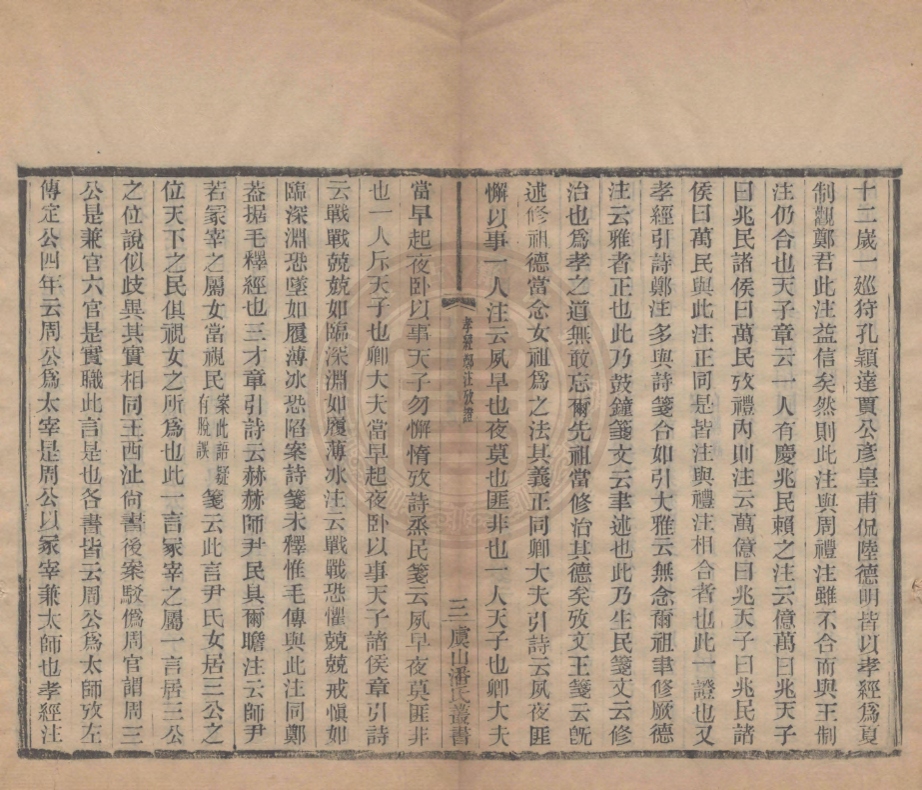 十二歲一廵狩孔穎達賈公彥皇甫侃陸德明皆以孝經爲夏
制觀鄭君此注益信矣然則此注與周禮注雖不合而與王制
注仍合也天子章云一人有慶兆民賴之注云億萬曰兆天子
曰兆民諸侯曰萬民攷禮內則注云萬億曰兆天子曰兆民諸
侯曰萬民與此注正同是皆注與禮注相合者也此一證也又
孝經引詩鄭注多與詩箋合如引大雅云無念爾祖聿修厥德
注云雅者正也此乃鼓鐘箋文云聿述也此乃生民箋文云修
治也爲孝之道無敢忘爾先祖當修治其德矣攷文王箋云旣
述修祖德當念女祖爲之法其義正同卿大夫引詩云夙夜匪
懈以事一人注云夙早也夜莫也匪非也一人天子也卿大夫
孝經鄭注攷證
三
虞山潘氏叢書
當早起夜卧以事天子勿懈惰攷詩烝民箋云夙早夜莫匪非
也一人斥天子也卿大夫當早起夜卧以事天子諸侯章引詩
云戰戰兢兢如臨深淵如履薄冰注云戰戰恐懼兢兢戒愼如
臨深淵恐墜如履薄冰恐陷案詩箋未釋惟毛傳與此注同鄭
葢据毛釋經也三才章引詩云赫赫師尹民具爾瞻注云師尹
若冡宰之屬女當視民案此語疑有脫誤箋云此言尹氏女居三公之
位天下之民俱視女之所爲也此一言冡宰之屬一言居三公
之位說似歧異其實相同王西沚尙書後案駁僞周官謂周三
公是兼官六官是實職此言是也各書皆云周公爲太師攷左
傳定公四年云周公爲太宰是周公以冡宰兼太師也孝經注